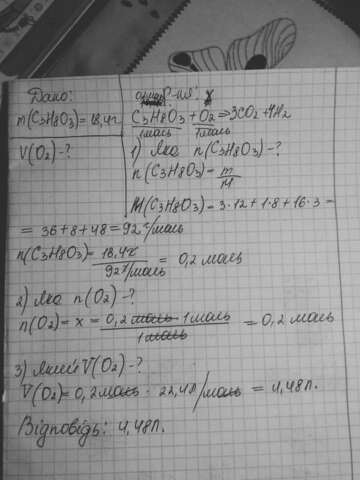 Дано:
m(C3H8O3)=18,4г
V(O2)-?
Р-ня: x
C3H8O3+O2=>3CO2+4H2
1моль 1моль
1) Яка n(C3H8O3)-?
n(C3H8O3)=m/M
M(C3H8O3)=3·12+1·8+16·3=
=36+8+48=92г/моль
n(C3H8O3)=18,4г/92г/моль=0,2моль
2) Яка n(O2)-?
n(O2)=x=0,2моль·1моль/1моль=0,2моль
3) Який V(O2)-?
V(O2)=0,2моль·22,4л/моль=4,48л.
Відповідь: 4,48л.